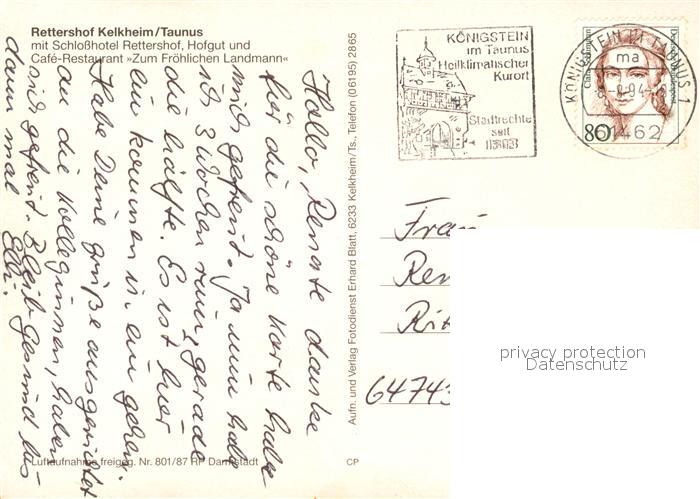 Rettershof Kelkheim/Taunus
mit Schloßhotel Rettershof, Hofgut und
Café-Restaurant »Zum Fröhlichen Landmann«
Hallo, Renate danke
für die schöne Karte habe
mich gefreut. Ja nun hab
ich 3 Wochen rum, gerade
die hälfte. Es ist hier
ein kommen u. ein gehen.
Habe Deine grüße ausgerichtet
an die Kolleginnen, haben
sich gefreut. Bleib gesund bis
dann mal Elli.
Luftaufnahme freigeg. Nr. 801/87 RP Darmstadt
CP
Aufn. und Verlag Fotodienst Erhard Blatt, 6233 Kelkheim/Ts., Telefon (06195) 2865
KÖNIGSTEIN
im Taunus
Heilklimatischer
Kurort
Stadtrechte
seit
1313
KÖNIGSTEIN IM TAUNUS
ma
61462
80
Deutsche Bundespost
Frau
Ren
Rit
64743
privacy protection
Datenschutz